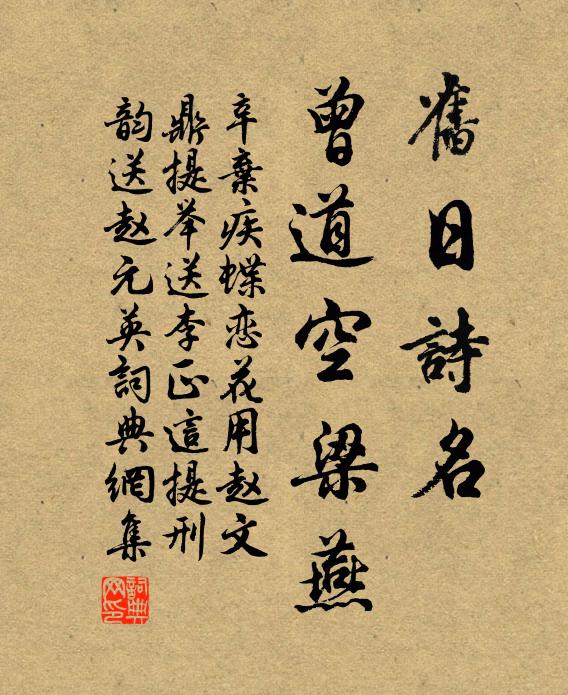 舊日詩名
曾道空梁燕
辛棄疾蝶恋花用赵文
鼎提举送李正這提刑
韵送赵元英詞典網集
詞典
网印